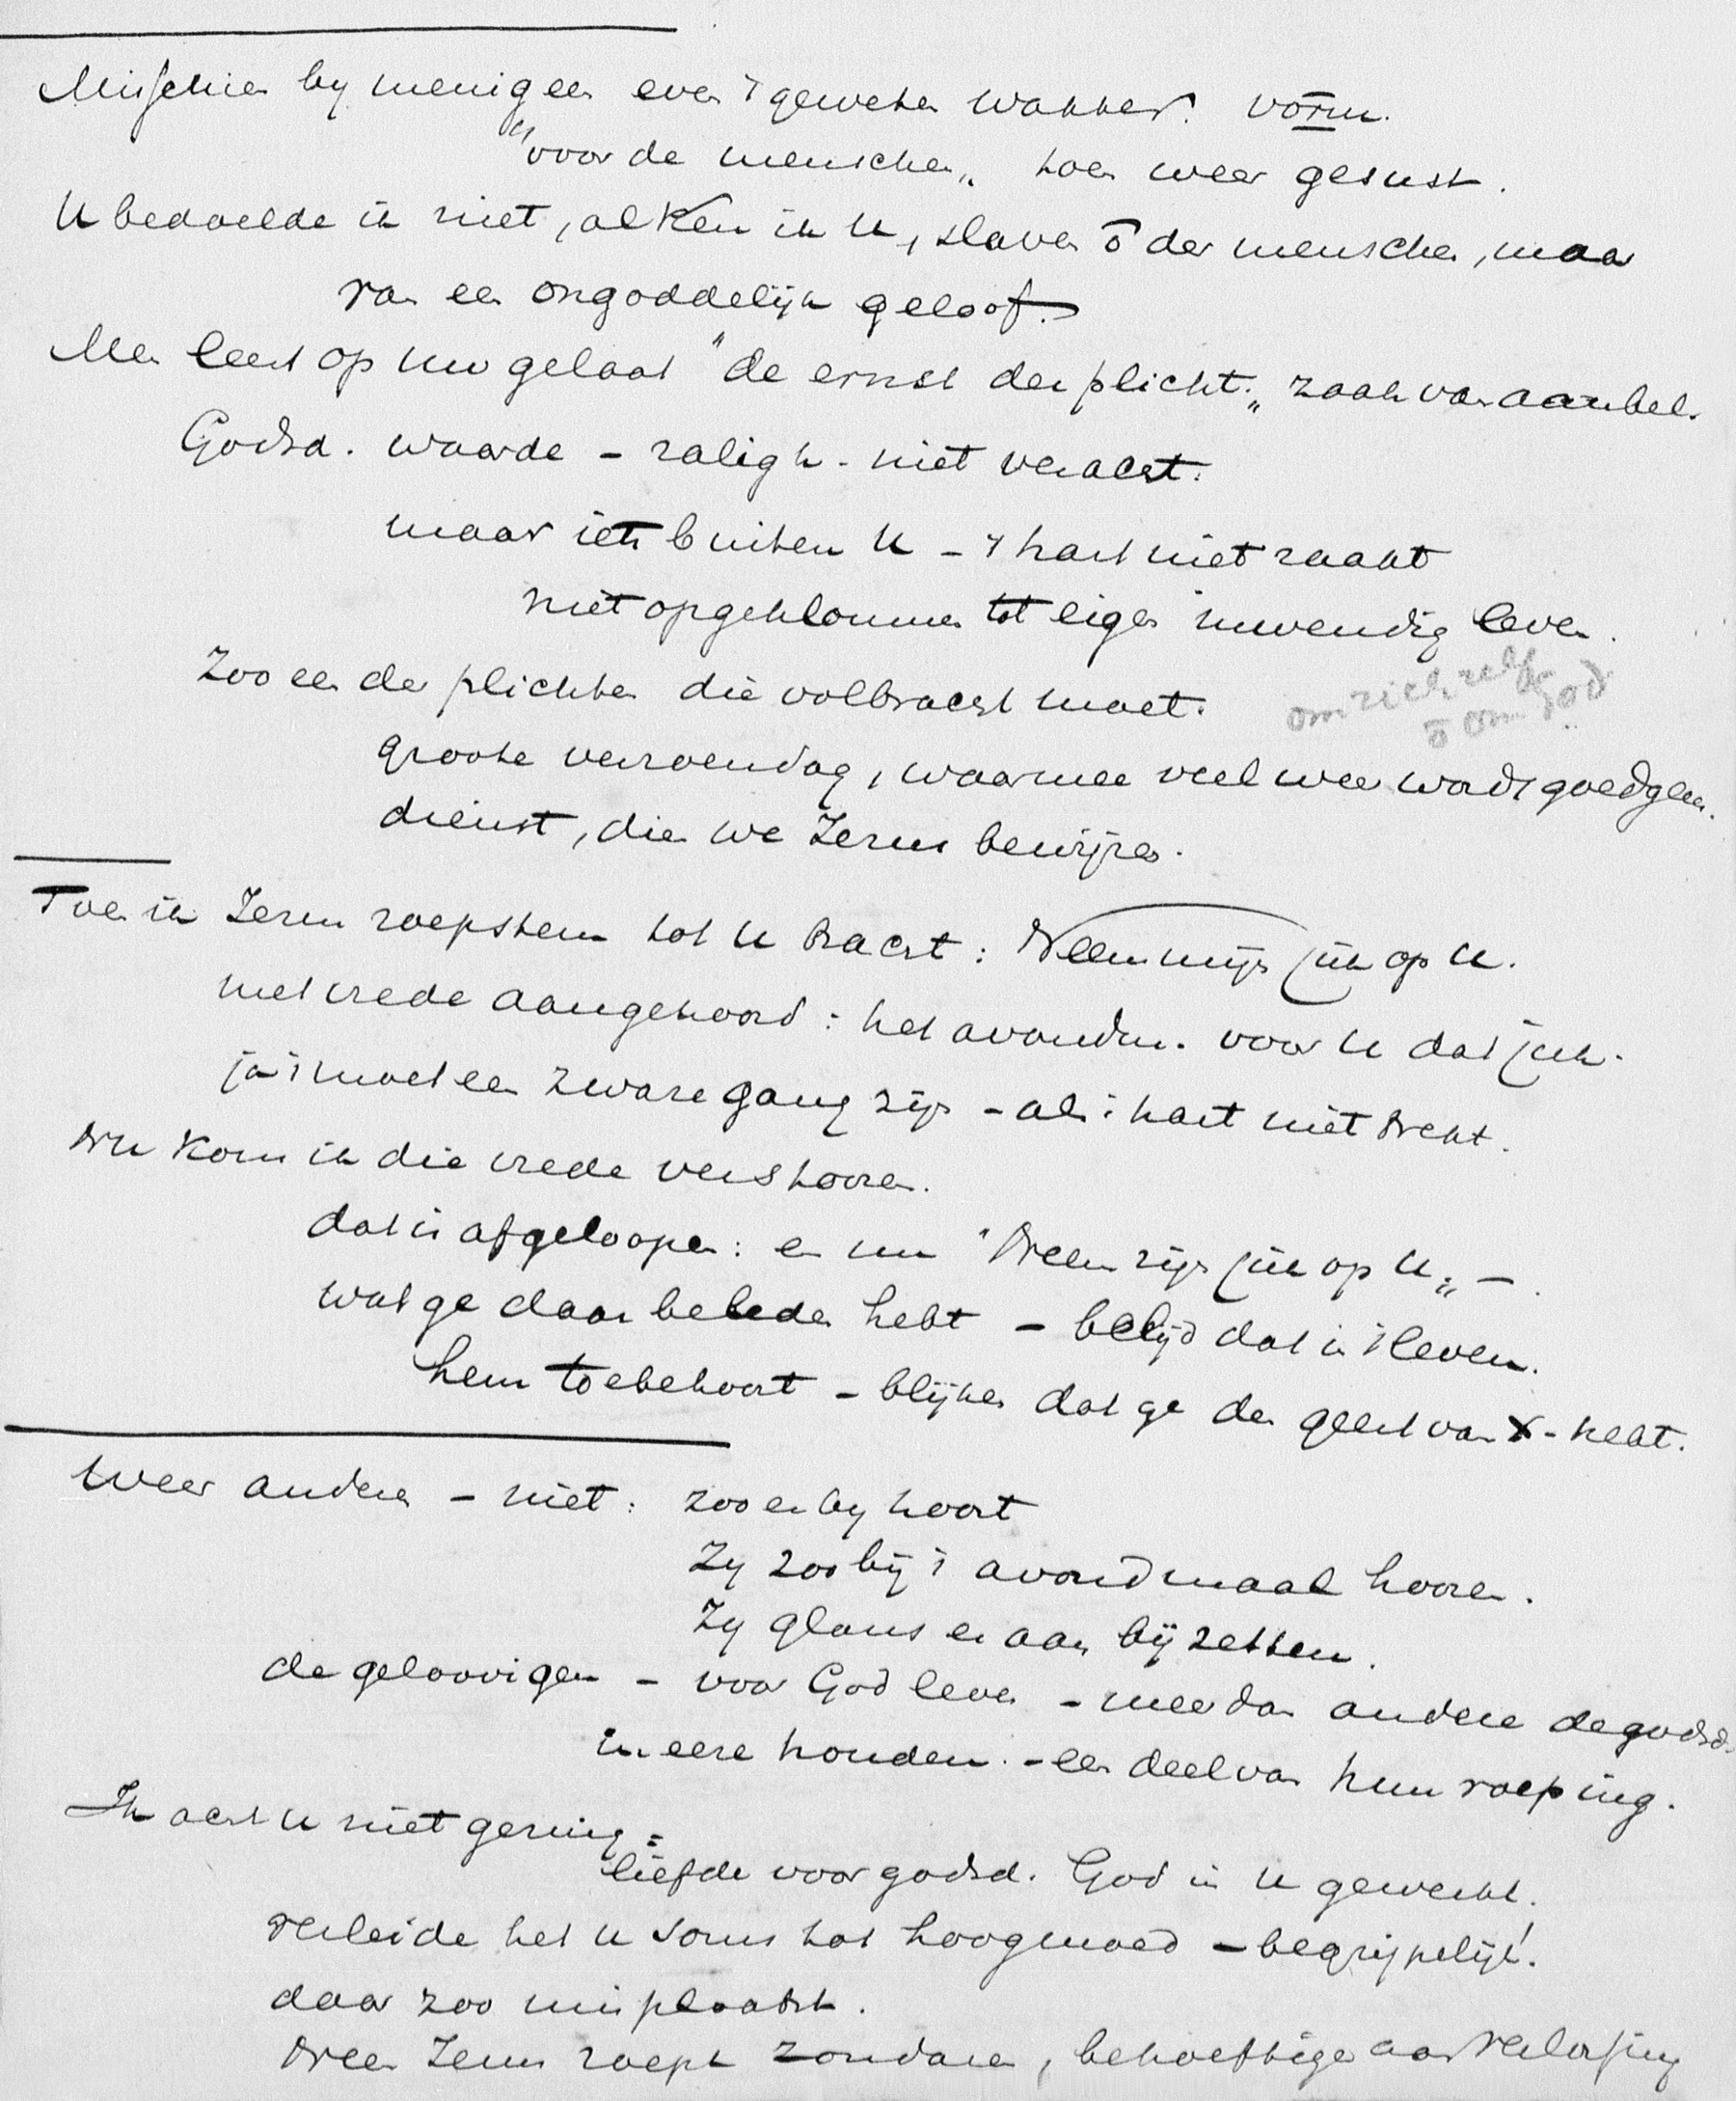 Misschien by menigeen even 't geweten wakker. vorm.
"voor de menschen" toen weer gesust.
U bedoelde ik niet, al ken ik U, slaven ō der menschen, maar
van een ongoddelijk geloof.
Men leest op uw gelaat "de ernst der plicht": zaak van aanbel.
Godsd. waarde – zaligh. niet veracht.
maar iets buiten U – 't hart niet raakt
niet opgeklommen tot eigen inwendig leven.
Zoo een der plichten die volbracht moet.
om zich zelf
ō om God
groote verzoendag, waarmee veel weer wordt goedgem.
dienst, dien we Jezus bewijzen.
Toen ik Jezus roepstem tot U bracht: Neem mijn juk op U.
met vrede aangehoord: het avondm. voor U dat juk.
ja 't moet een zware gang zijn – als 't hart niet trekt.
Nu kom ik die vrede verstooren.
dat is afgeloopen: en nu "Neem zijn juk op U" –.
wat ge daar beleden hebt – belijd dat in 't leven.
hem toebehoort – blijken dat ge den geest van X – hebt.
Weer anderen – niet: zoo er by hoort
Zy zoo bij 't avondmaal hooren.
Zy glans er aan bijzetten.
de geloovigen – voor God leven – meer dan andere de godsd.
in eere houden. – een deel van hun roeping.
Ik acht U niet gering:
liefde voor godsd. God in U gewerkt.
verleide het U soms tot hoogmoed – begrijpelijk!
daar zoo misplaatst.
Neen Jezus roept zondaren, behoeftigen aan verlossing